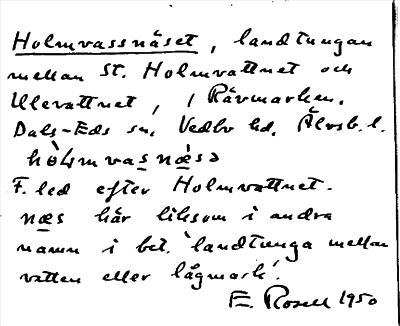 Holmvassnäset, landtungan
mellan St. Holmvattnet och
Ulevattnet, i Rävmarken.
Dals-Eds sn, Vedbo hd, Älvsb. l.
F. led efter Holmvattnet.
næs här liksom i andra
namn i bet. 'landtunga mellan
vatten eller lågmark'.
E. Rosell 1950